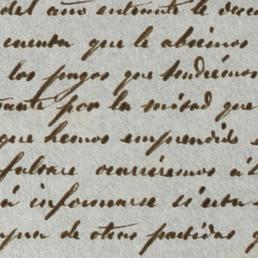 del año entrante le
cuenta que le abrimos
los pagos que tendremos
por la mitad que
que hemos emprendido
faltare ocurriremos á
á informarse si esta
de otras partidas